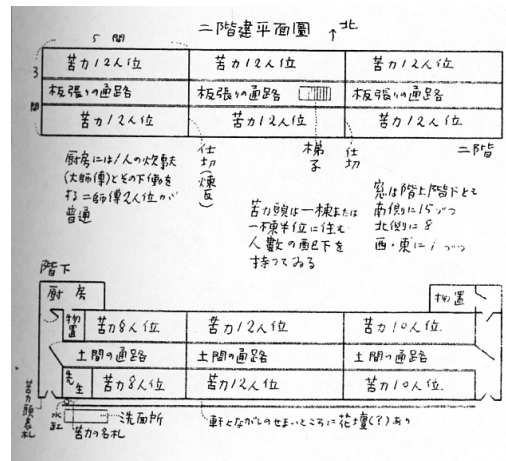 二階建平面圖 ↑北
5間
3間
苦力12人位 苦力12人位 苦力12人位
板張りの通路 板張りの通路 板張りの通路
苦力12人位 苦力12人位 苦力12人位
仕切(煉瓦)
梯子
仕切
二階
厨房には1人の炊事夫
(大師傅)とその下働を
する二師傅2人位が
普通
苦力頭は一棟または
一棟半位に住む
人数の配下を
持つてゐる
窓は階上階下とも
南側に15づつ
北側に8
西・東に1づつ
階下
厨房
物置
物置 苦力8人位 苦力12人位 苦力10人位
土間の通路 土間の通路 土間の通路
先生 苦力8人位 苦力12人位 苦力10人位
苦力頭表札
水缸
洗面所
苦力の名札
軒とながしのせまいところに花壇(?)あり